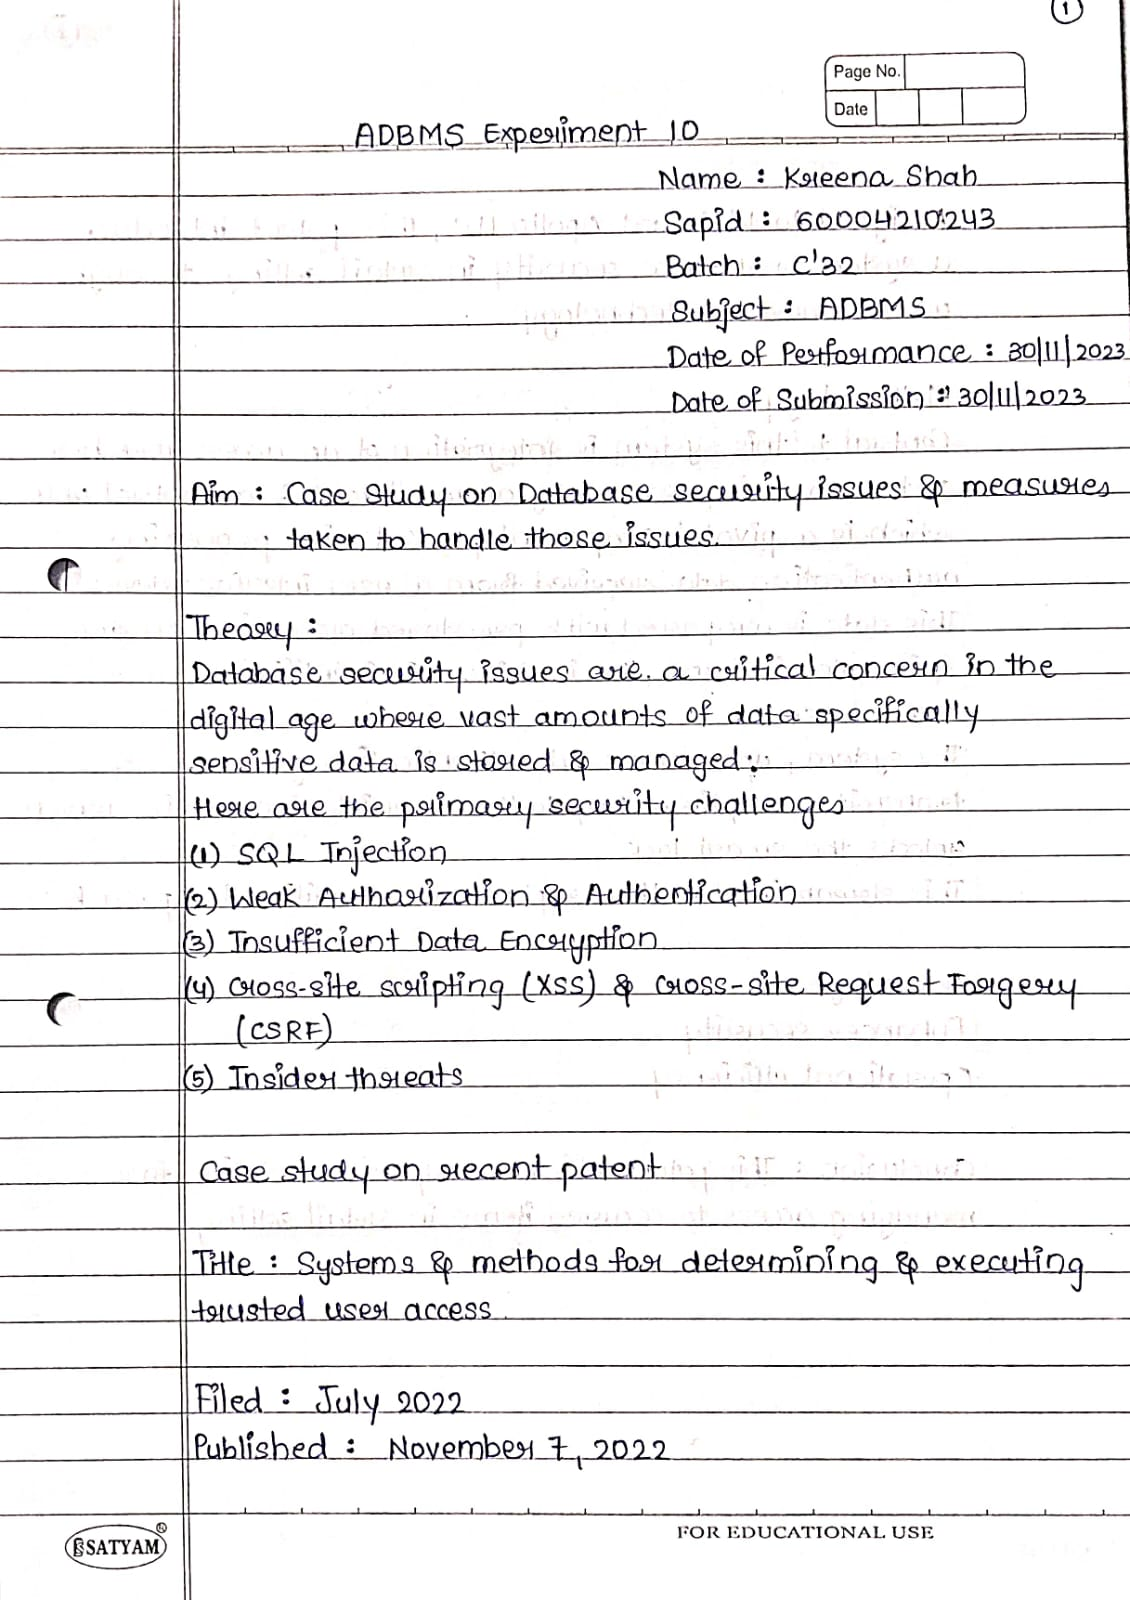 1
Page No.
Date
ADBMS Experiment 10
Name : Kreena Shah
Sapid : 60004210243
Batch : C'32
Subject : ADBMS
Date of Performance : 30/11/2023
Date of Submission : 30/11/2023
Aim : Case study on Database security issues & measures
taken to handle those issues.
Theory :
Database security issues are a critical concern in the
digital age where vast amounts of data specifically
sensitive data is stored & managed.
Here are the primary security challenges
(1) SQL Injection
(2) Weak Authorization & Authentication
(3) Insufficient Data Encryption
(4) Cross-site scripting (XSS) & Cross-site Request Forgery
(CSRF)
(5) Insider threats
Case study on recent patent
Title : Systems & methods for determining & executing
trusted user access.
Filed : July 2022
Published : November 7, 2022
SATYAM
FOR EDUCATIONAL USE